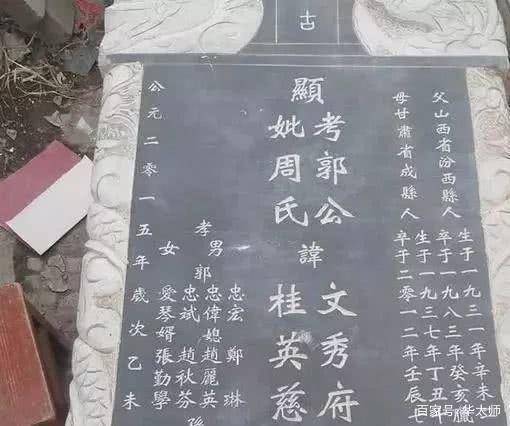 古
父山西省汾西縣人
生于一九三一年辛未
卒于一九八三年癸亥臘
母甘肅省成縣人
生于一九三七年丁丑十
卒于二零一二年壬辰七
顯
考郭公
妣周氏
諱
文秀府
桂英慈
孝
男
郭
忠宏 鄭琳
忠偉媳趙麗英
忠斌 趙秋芬
女
愛琴婿張勤學
孫
公元二零一五年歲次乙未
百家号·华大师